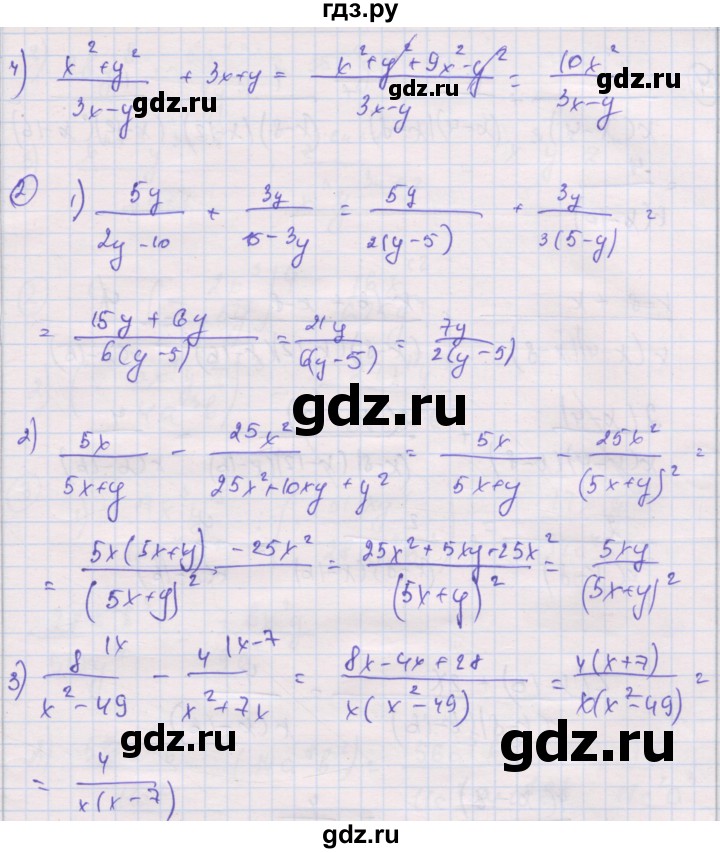 гдз.ру
4) (x² + y²)/(3x - y) + 3x + y = (x² + y² + 9x² - y²)/(3x - y) = 10x²/(3x - y)
gdz.ru gdz.ru gdz.ru
② 1) 5y/(2y - 10) + 3y/(15 - 3y) = 5y/(2(y - 5)) + 3y/(3(5 - y)) =
gdz.ru gdz.ru
= (15y + 6y)/(6(y - 5)) = 21y/(6(y - 5)) = 7y/(2(y - 5))
gdz.ru
2) 5x/(5x + y) - 25x²/(25x² + 10xy + y²) = 5x/(5x + y) - 25x²/(5x + y)² =
= (5x(5x + y) - 25x²)/(5x + y)² = (25x² + 5xy - 25x²)/(5x + y)² = 5xy/(5x + y)²
gdz.ru gdz.ru
3) 8 |x/(x² - 49) - 4 |x - 7/(x² + 7x) = (8x - 4x + 28)/(x(x² - 49)) = 4(x + 7)/(x(x² - 49)) =
gdz.ru gdz.ru
= 4/(x(x - 7))
gdz.ru